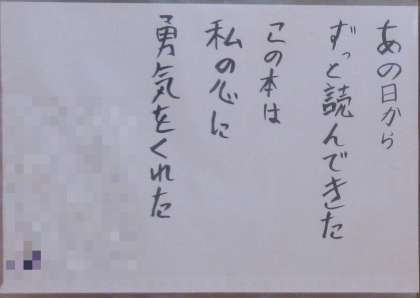 あの日から
ずっと読んできた
この本は
私の心に
勇気をくれた